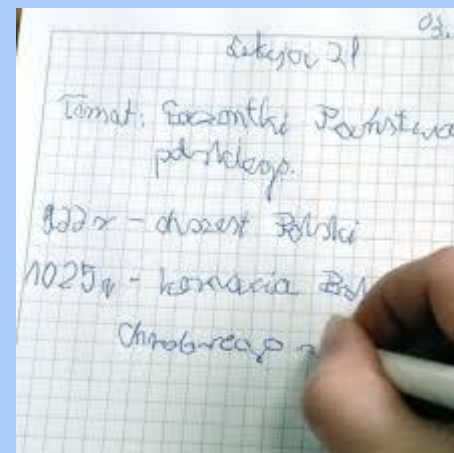 03.
Lekcja 21
Temat: Poczontki Państwa
polskiego.
966 r - chrzest Polski
1025 r - koronacja Bol
Chrobrego